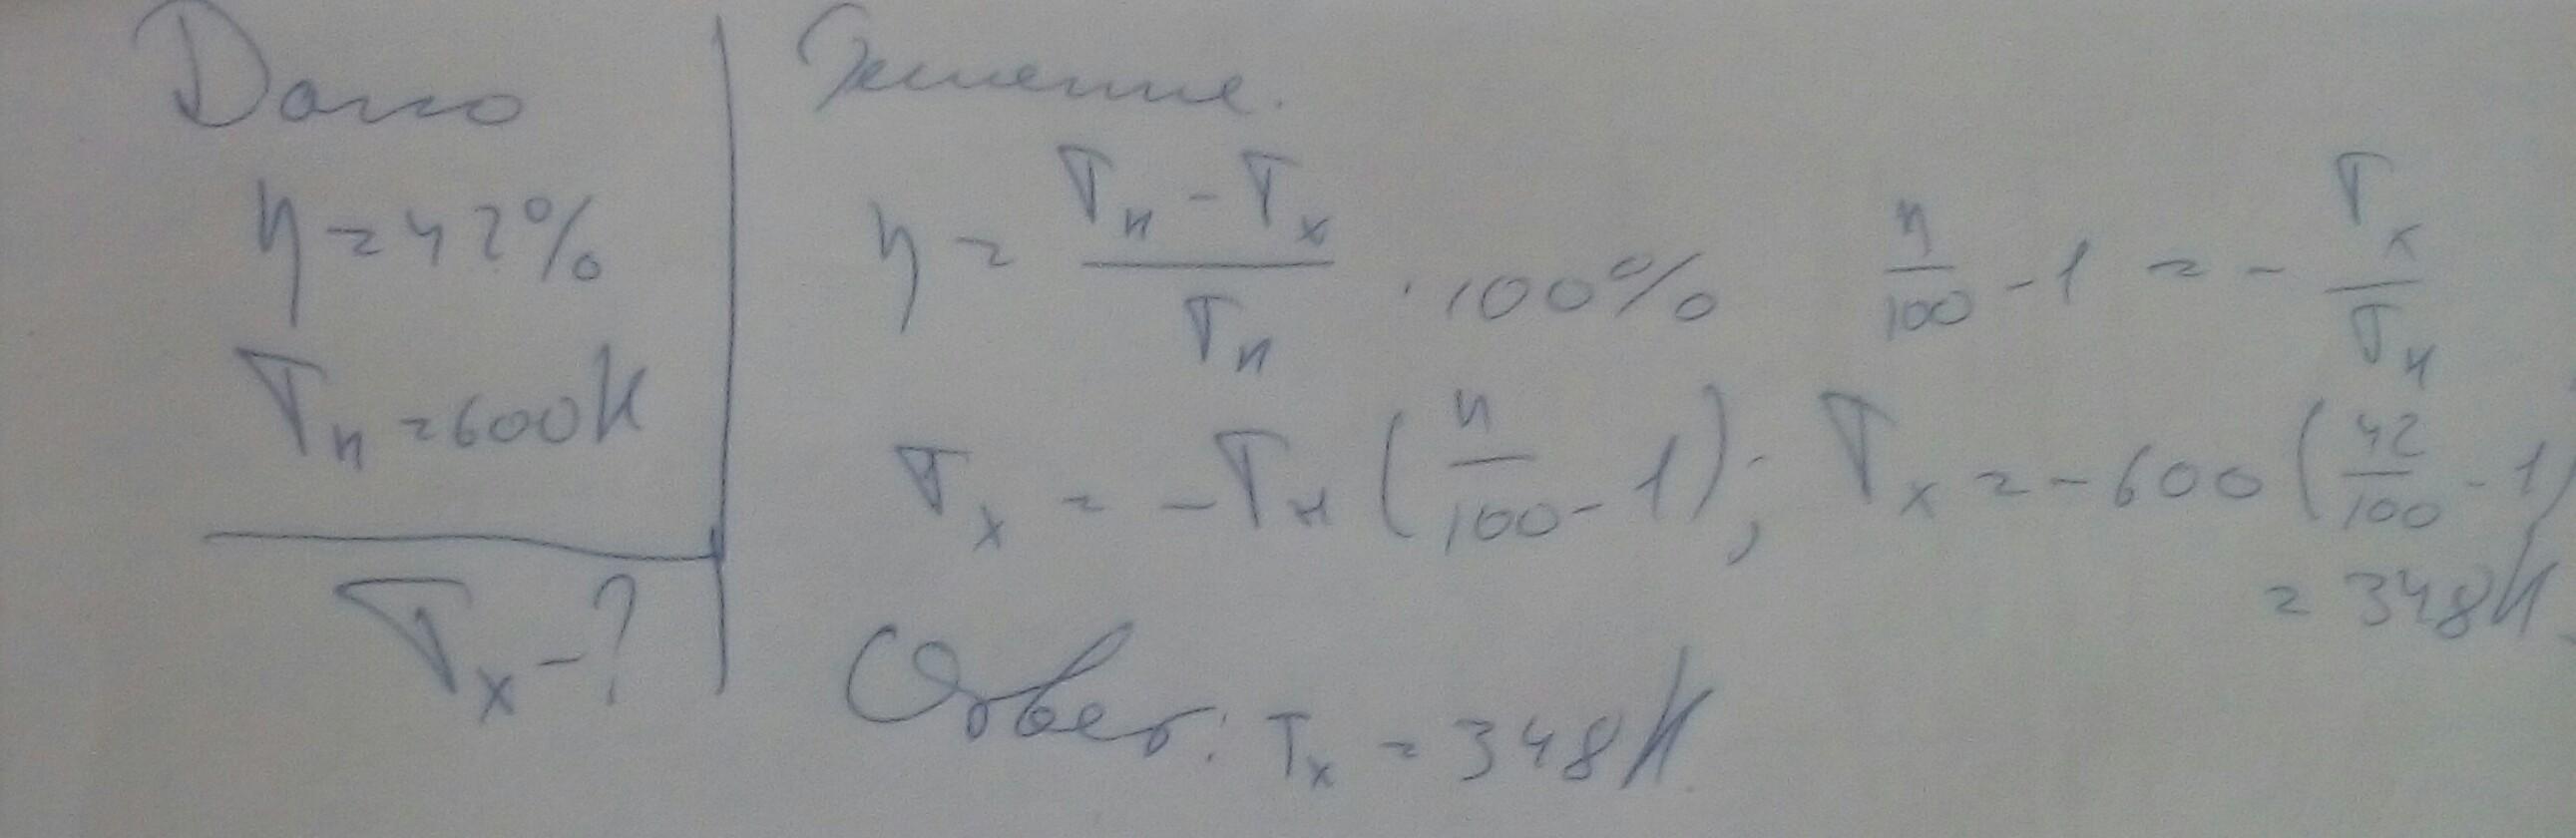 Дано
η = 42%
Tн = 600 К
Tх - ?
Решение.
η = (Tн - Tх) / Tн · 100%
η/100 - 1 = - Tх/Tн
Tх = -Tн (η/100 - 1); Tх = -600 (42/100 - 1)
= 348 К
Ответ: Tх = 348 К.